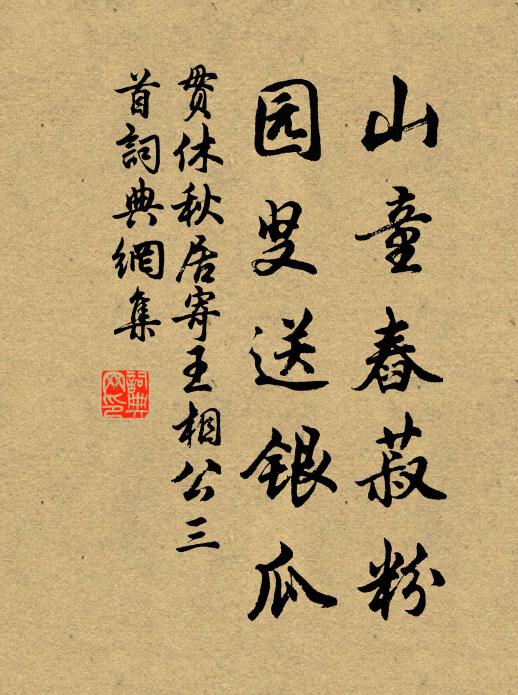 山童舂菽粉
园叟送银瓜
贯休秋居寄王相公三
首詞典網集
詞典
网印